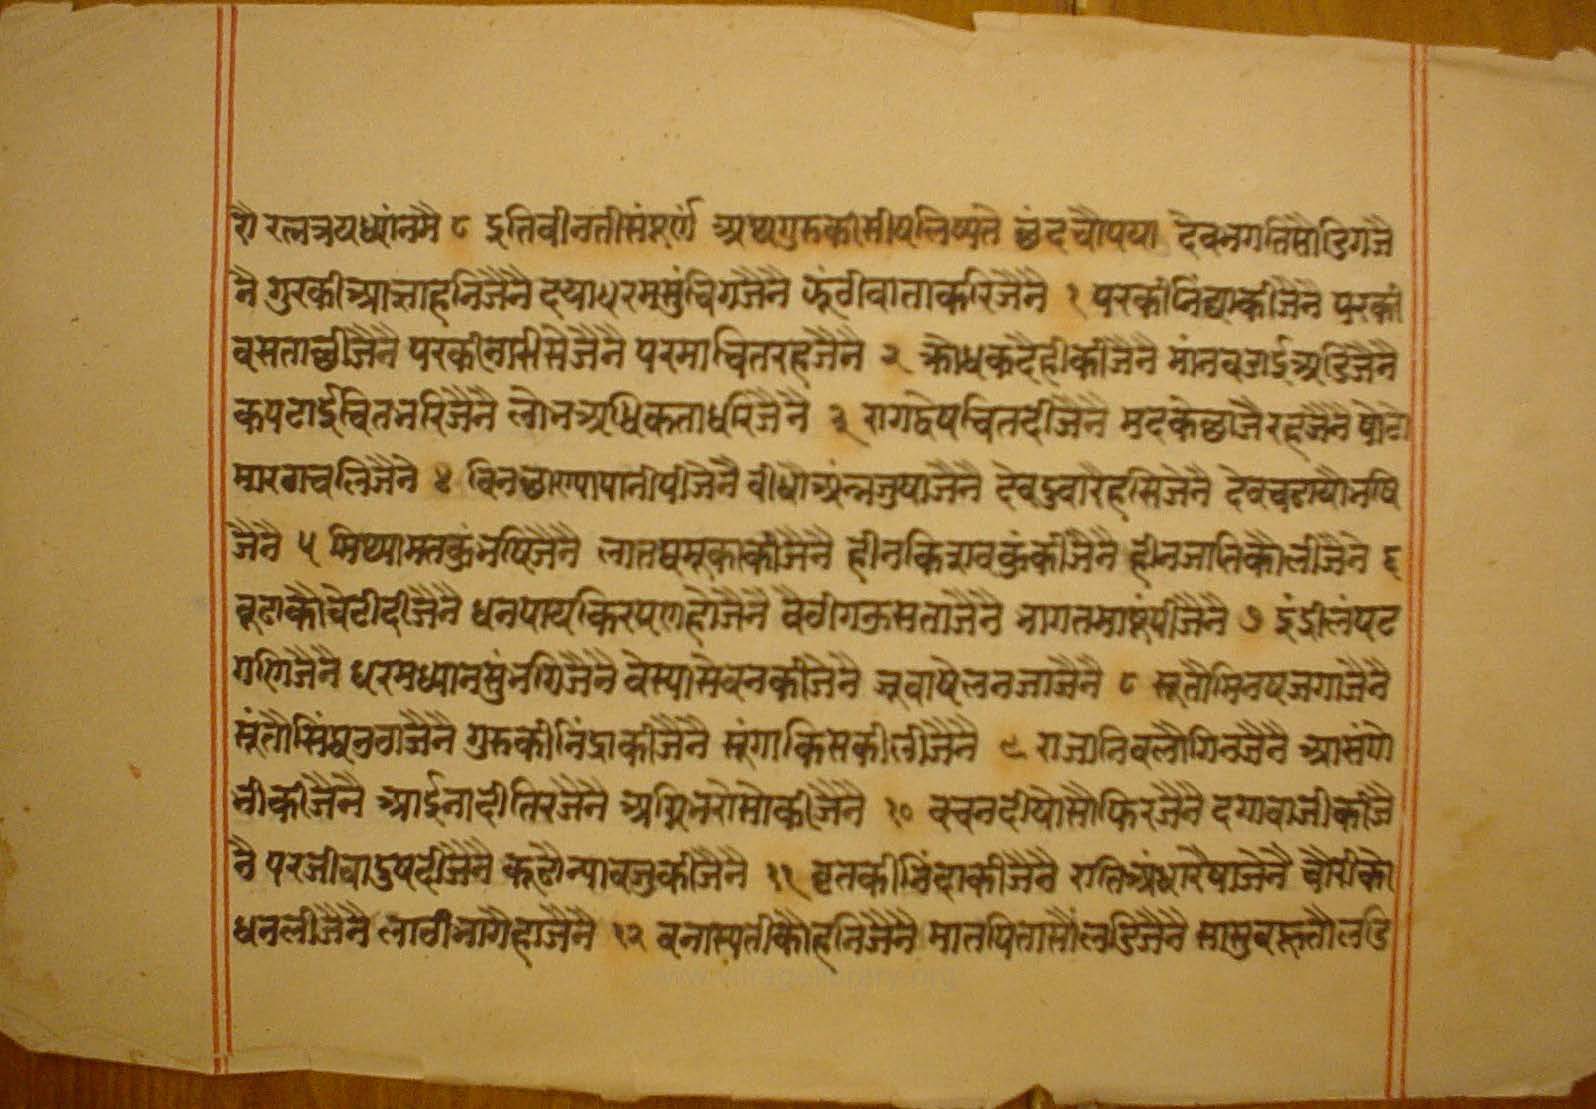 रौ रत्नत्रयध्यांनमै ८ इतिवीनतीसंपूर्ण अथगुरुकीसीषलिष्यते छंदचौपया देवनगतिसौडिगजै
नै गुरकीआज्ञाहनिजैनै दयाधरमसुंचिगजैनै फुंठीवाताकरिजैनै १ परकीनिंद्याकीजैनै परकी
वसताछीजैनै परकीनारीसेजैनै परमाचितरहजैनै २ क्रोधकदैहीकीजैनै मांनवडाईअडिजैनै
कपटाईचितनरिजैनै लोभअधिकताधरिजैनै ३ रागद्वेषचितदीजैनै मदकेछाजैरहजैनै षोटो
मारगचलिजैनै ४ विनछाण्यापानीपीजैनै वीधौअंन्नजुषाजैनै देवदुवारैहसिजेनै देवचढायौभषि
जैनै ५ मिथ्यामतकुंभषिजैनै लातघमूकाकीजैनै हीनकिरावकुंकीजैनै हीनजातिकौलीजैनै ६
बूढाकौबेटीदीजैनै धनपायकिरपणहोजैनै बैठीगऊसताजैनै भागतमाषूंपीजैनै ७ इंद्रीलंपट
गणिजैनै धरमध्यानसुंभगिजैनै वेस्यासेवनकीजैनै जूवाषेलनजाजैनै ८ सूतौमिनषजगाजैनै
सूंतौसिंघनवाजैनै गुरुकीनिंद्राकीजैनै सूंगाकिसकीलीजैनै ९ राजानिवलौगिनजैनै आसंगो
नीकीजैनै आईनादीतिरजैनै अग्निभरोसोकीजैनै १० वचनदीयोसौफिरजैनै दगावाजीकीजै
नै परजीवादुषदीजैनै कूढौन्यावजुकीजैनै ११ वृतकीनिंदाकीजैनै रातिअंधारैषाजेनै चौरीको
धनलीजैनै लाठीभागैहाजैनै १२ वनास्पतीकौहनिजैनै मातपितासौंलडिजैनै सासुवसूतौलडि